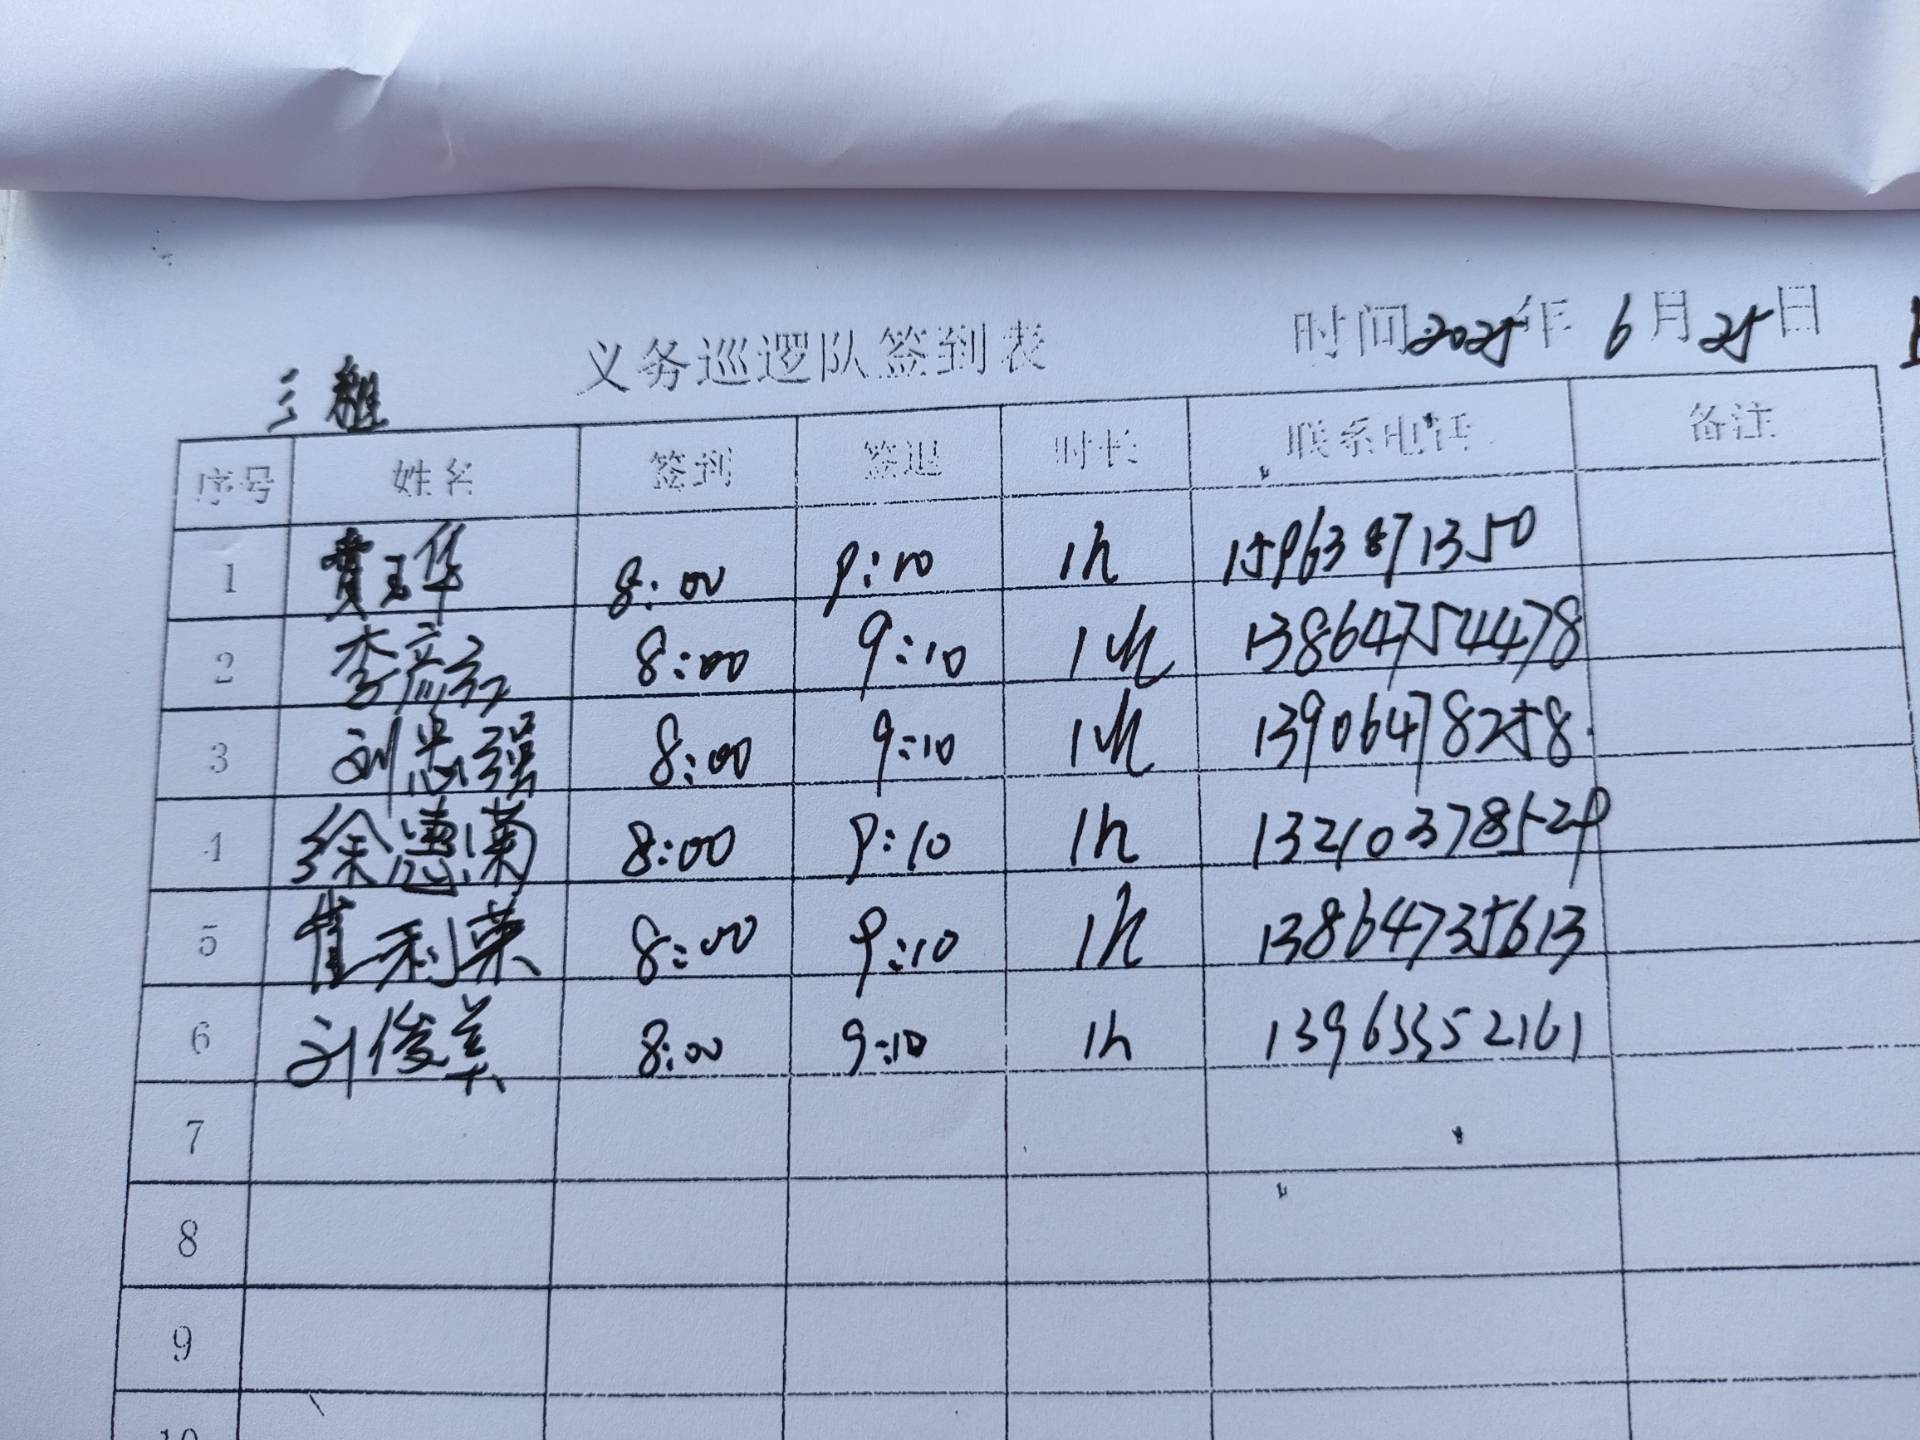 义务巡逻队签到表
时间2025年 6月25日
序号 姓名 签到 签退 时长 联系电话 备注
1 费玉华 8:00 9:10 1h 15963871350
2 李彦云 8:00 9:10 1h 13864754478
3 刘忠强 8:00 9:10 1h 13906478258
4 徐惠菊 8:00 9:10 1h 13210378529
5 崔利荣 8:00 9:10 1h 13864735613
6 刘俊美 8:00 9:10 1h 13963352161
7
8
9
10